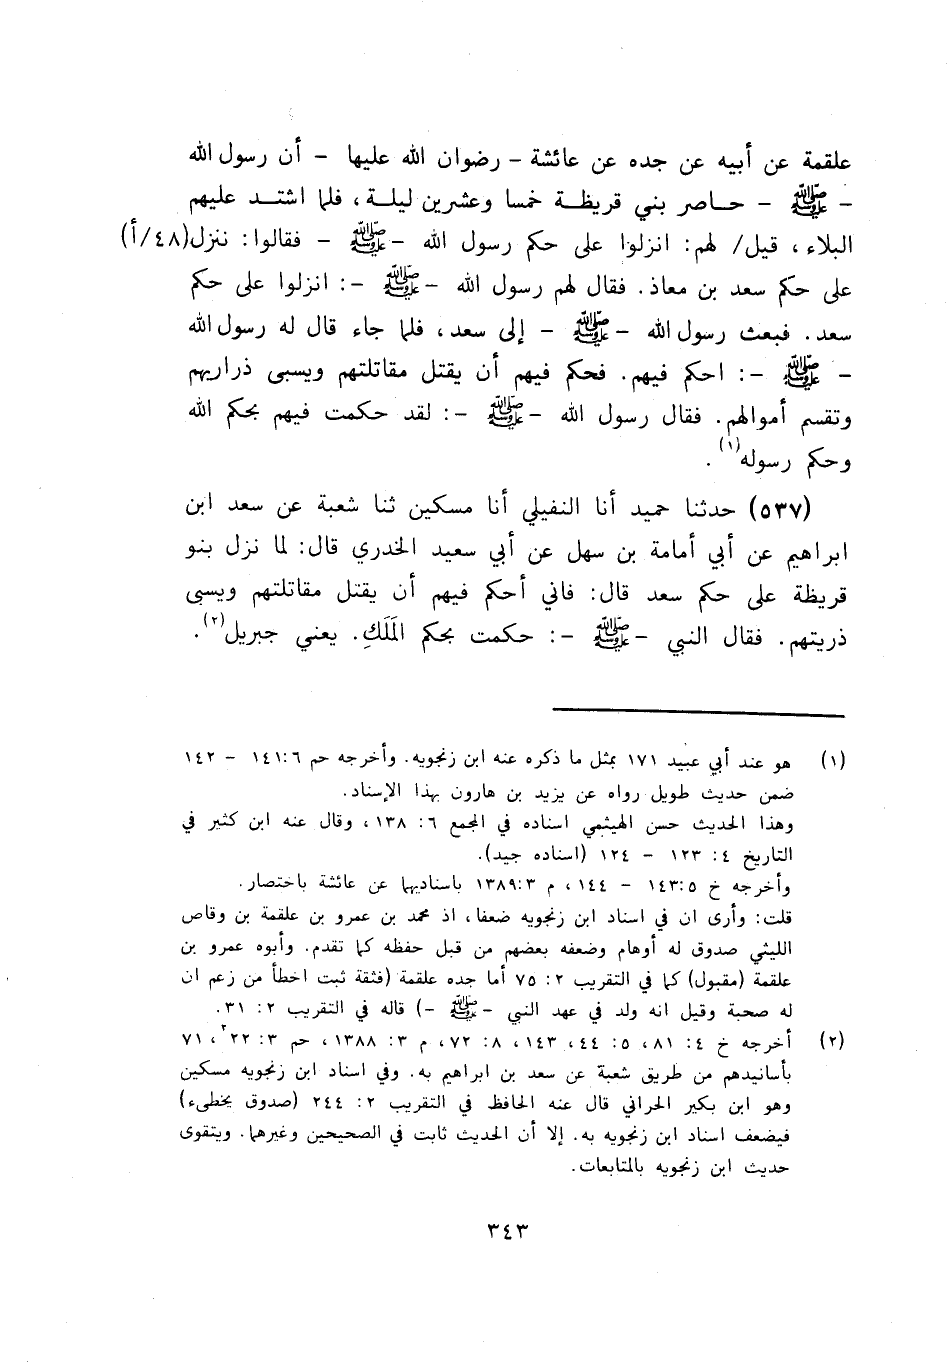 علقمة عن أبيه عن جده عن عائشة - رضوان الله عليها - أن رسول الله
- ﷺ - حاصر بني قريظة خمسا وعشرين ليلة، فلما اشتد عليهم
البلاء، قيل/ لهم: انزلوا على حكم رسول الله - ﷺ - فقالوا: ننزل (٤٨/أ)
على حكم سعد بن معاذ. فقال لهم رسول الله - ﷺ -: انزلوا على حكم
سعد. فبعث رسول الله - ﷺ - إلى سعد، فلما جاء قال له رسول الله
- ﷺ -: احكم فيهم. فحكم فيهم أن يقتل مقاتلتهم ويسبى ذراريهم
وتقسم أموالهم. فقال رسول الله - ﷺ -: لقد حكمت فيهم بحكم الله
وحكم رسوله(١).
(٥٣٧) حدثنا حميد أنا النفيلي أنا مسكين ثنا شعبة عن سعد ابن
ابراهيم عن أبي أمامة بن سهل عن أبي سعيد الخدري قال: لما نزل بنو
قريظة على حكم سعد قال: فاني أحكم فيهم أن يقتل مقاتلتهم ويسبى
ذريتهم. فقال النبي - ﷺ -: حكمت بحكم المَلَكِ. يعني جبريل(٢).
(١) هو عند أبي عبيد ١٧١ بمثل ما ذكره عنه ابن زنجويه. وأخرجه حم ٦: ١٤١ - ١٤٢
ضمن حديث طويل رواه عن يزيد بن هارون بهذا الإسناد.
وهذا الحديث حسن الهيثمي اسناده في المجمع ٦: ١٣٨، وقال عنه ابن كثير في
التاريخ ٤: ١٢٣ - ١٢٤ (اسناده جيد).
وأخرجه خ ٥: ١٤٣ - ١٤٤، م ٣: ١٣٨٩ باسناديهما عن عائشة باختصار.
قلت: وأرى ان في اسناد ابن زنجويه ضعفا، اذ محمد بن عمرو بن علقمة بن وقاص
الليثي صدوق له أوهام وضعفه بعضهم من قبل حفظه كما تقدم. وأبوه عمرو بن
علقمة (مقبول) كما في التقريب ٢: ٧٥ أما جده علقمة (فثقة ثبت اخطأ من زعم ان
له صحبة وقيل انه ولد في عهد النبي - ﷺ -) قاله في التقريب ٢: ٣١.
(٢) أخرجه خ ٤: ٨١، ٥: ٤٤، ١٤٣، ٨: ٧٢، م ٣: ١٣٨٨، حم ٣: ٢٢، ٧١
بأسانيدهم من طريق شعبة عن سعد بن ابراهيم به. وفي اسناد ابن زنجويه مسكين
وهو ابن بكير الحراني قال عنه الحافظ في التقريب ٢: ٢٤٤ (صدوق يخطىء)
فيضعف اسناد ابن زنجويه به. إلا أن الحديث ثابت في الصحيحين وغيرهما. ويتقوى
حديث ابن زنجويه بالمتابعات.
٣٤٣